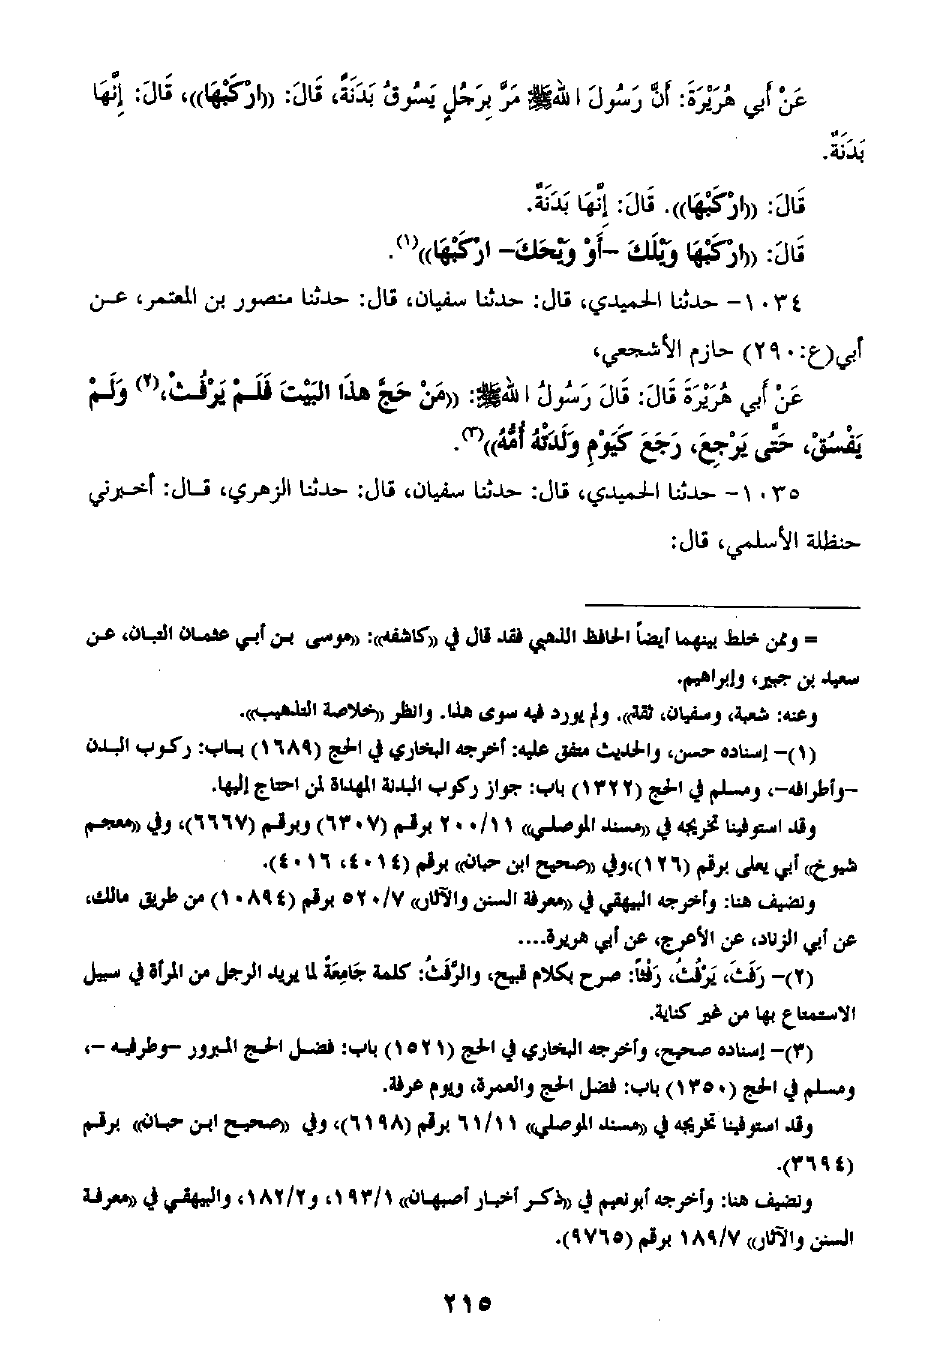 عَنْ أَبي هُرَيْرَةَ: أَنَّ رَسُولَ اللهِ ﷺ مَرَّ بِرَجُلٍ يَسُوقُ بَدَنَةً، قَالَ: ((ارْكَبْهَا))، قَالَ: إِنَّهَا
بَدَنَةٌ.
قَالَ: ((ارْكَبْهَا)). قَالَ: إِنَّهَا بَدَنَةٌ.
قَالَ: ((ارْكَبْهَا وَيْلَكَ -أَوْ وَيْحَكَ- ارْكَبْهَا))(١).
١٠٣٤- حدثنا الحميدي، قال: حدثنا سفيان، قال: حدثنا منصور بن المعتمر، عن
أبي(ع:٢٩٠) حازم الأشجعي،
عَنْ أَبي هُرَيْرَةَ قَالَ: قَالَ رَسُولُ اللهِ ﷺ: ((مَنْ حَجَّ هذَا البَيْتَ فَلَمْ يَرْفُثْ،(٢) وَلَمْ
يَفْسُقْ، حَتَّى يَرْجِعَ، رَجَعَ كَيَوْمِ وَلَدَتْهُ أُمُّهُ))(٣).
١٠٣٥- حدثنا الحميدي، قال: حدثنا سفيان، قال: حدثنا الزهري، قال: أخبرني
حنظلة الأسلمي، قال:
= وممن خلط بينهما أيضاً الحافظ الذهبي فقد قال في ((كاشفه)): ((موسى بن أبي عثمان التبان، عن
سعيد بن جبير، وإبراهيم.
وعنه: شعبة، وسفيان، ثقة)). ولم يورد فيه سوى هذا. وانظر ((خلاصة التذهيب)).
(١)- إسناده حسن، والحديث متفق عليه: أخرجه البخاري في الحج (١٦٨٩) باب: ركوب البدن
-وأطرافه-، ومسلم في الحج (١٣٢٢) باب: جواز ركوب البدنة المهداة لمن احتاج إليها.
وقد استوفينا تخريجه في ((مسند الموصلي)) ٢٠٠/١١ برقم (٦٣٠٧) وبرقم (٦٦٦٧)، وفي ((معجم
شيوخ)) أبي يعلى برقم (١٢٦)،وفي ((صحيح ابن حبان)) برقم (٤٠١٤، ٤٠١٦).
ونضيف هنا: وأخرجه البيهقي في ((معرفة السنن والآثار)) ٥٢٠/٧ برقم (١٠٨٩٤) من طريق مالك،
عن أبي الزناد، عن الأعرج، عن أبي هريرة....
(٢)- رَفَثَ، يَرْفُثُ، رَفْثاً: صرح بكلام قبيح، والرَّفَثُ: كلمة جامِعَةٌ لما يريد الرجل من المرأة في سبيل
الاستمتاع بها من غير كناية.
(٣)- إسناده صحيح، وأخرجه البخاري في الحج (١٥٢١) باب: فضل الحج المبرور -وطرفيه -،
ومسلم في الحج (١٣٥٠) باب: فضل الحج والعمرة، ويوم عرفة.
وقد استوفينا تخريجه في ((مسند الموصلي)) ٦١/١١ برقم (٦١٩٨)، وفي ((صحيح ابن حبان)) برقم
(٣٦٩٤).
ونضيف هنا: وأخرجه أبونعيم في ((ذكر أخبار أصبهان)) ١٩٣/١، و١٨٢/٢، والبيهقي في ((معرفة
السنن والآثار)) ١٨٩/٧ برقم (٩٧٦٥).
٢١٥